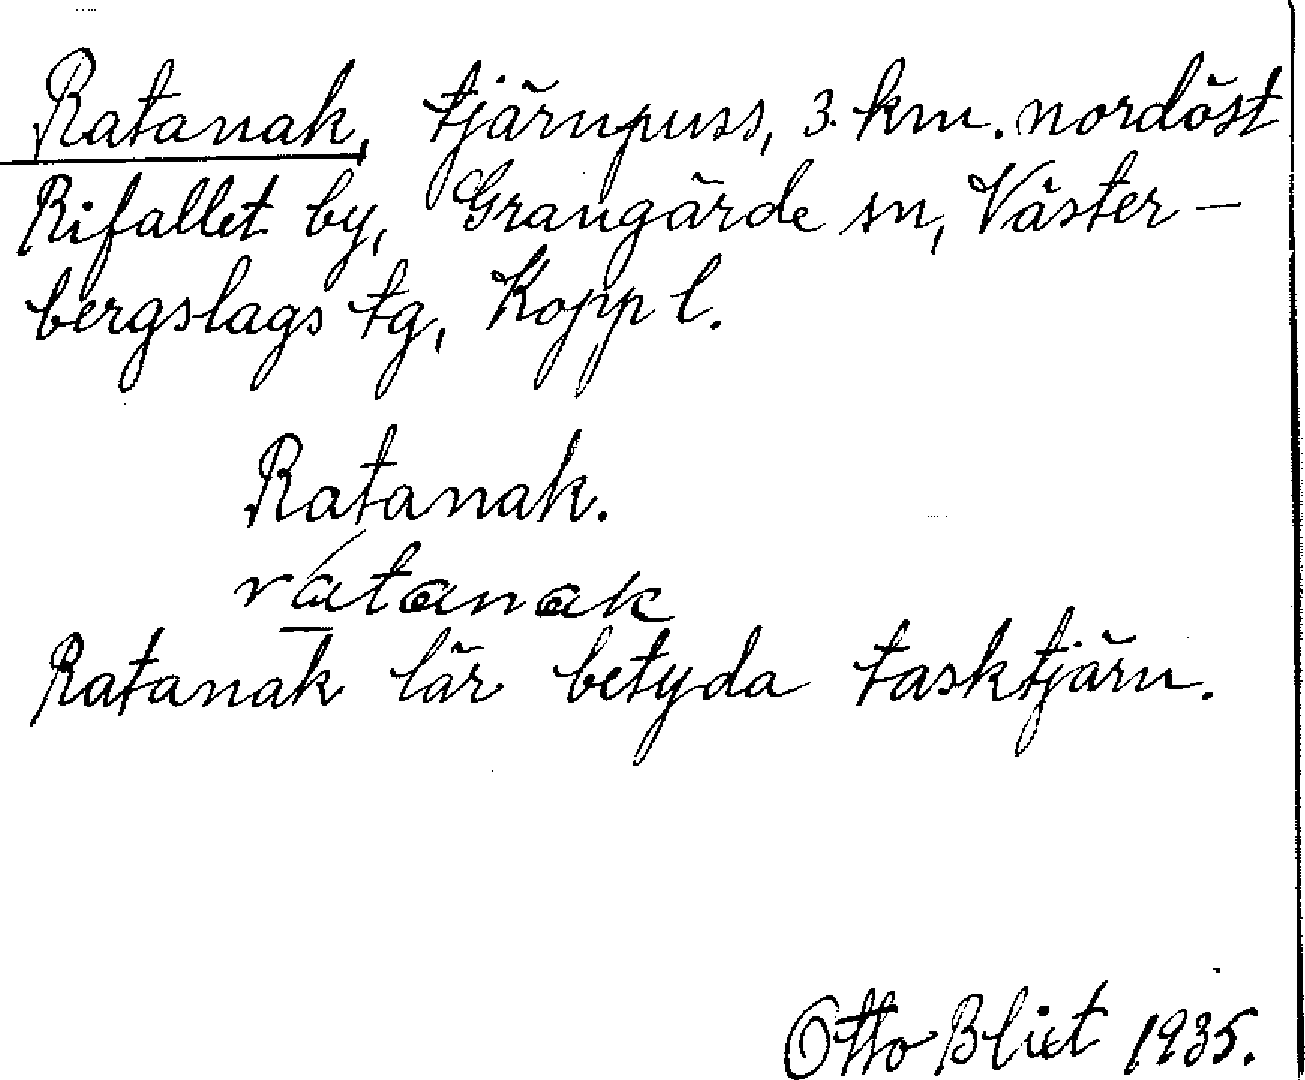 Ratanak, tjärnpuss, 3 km. nordöst
Rifallet by, Grangärde sn, Väster-
bergslags tg, Kopp l.
Ratanak.
ratanak
Ratanak lär betyda tasktjärn.
Otto Bliet 1935.